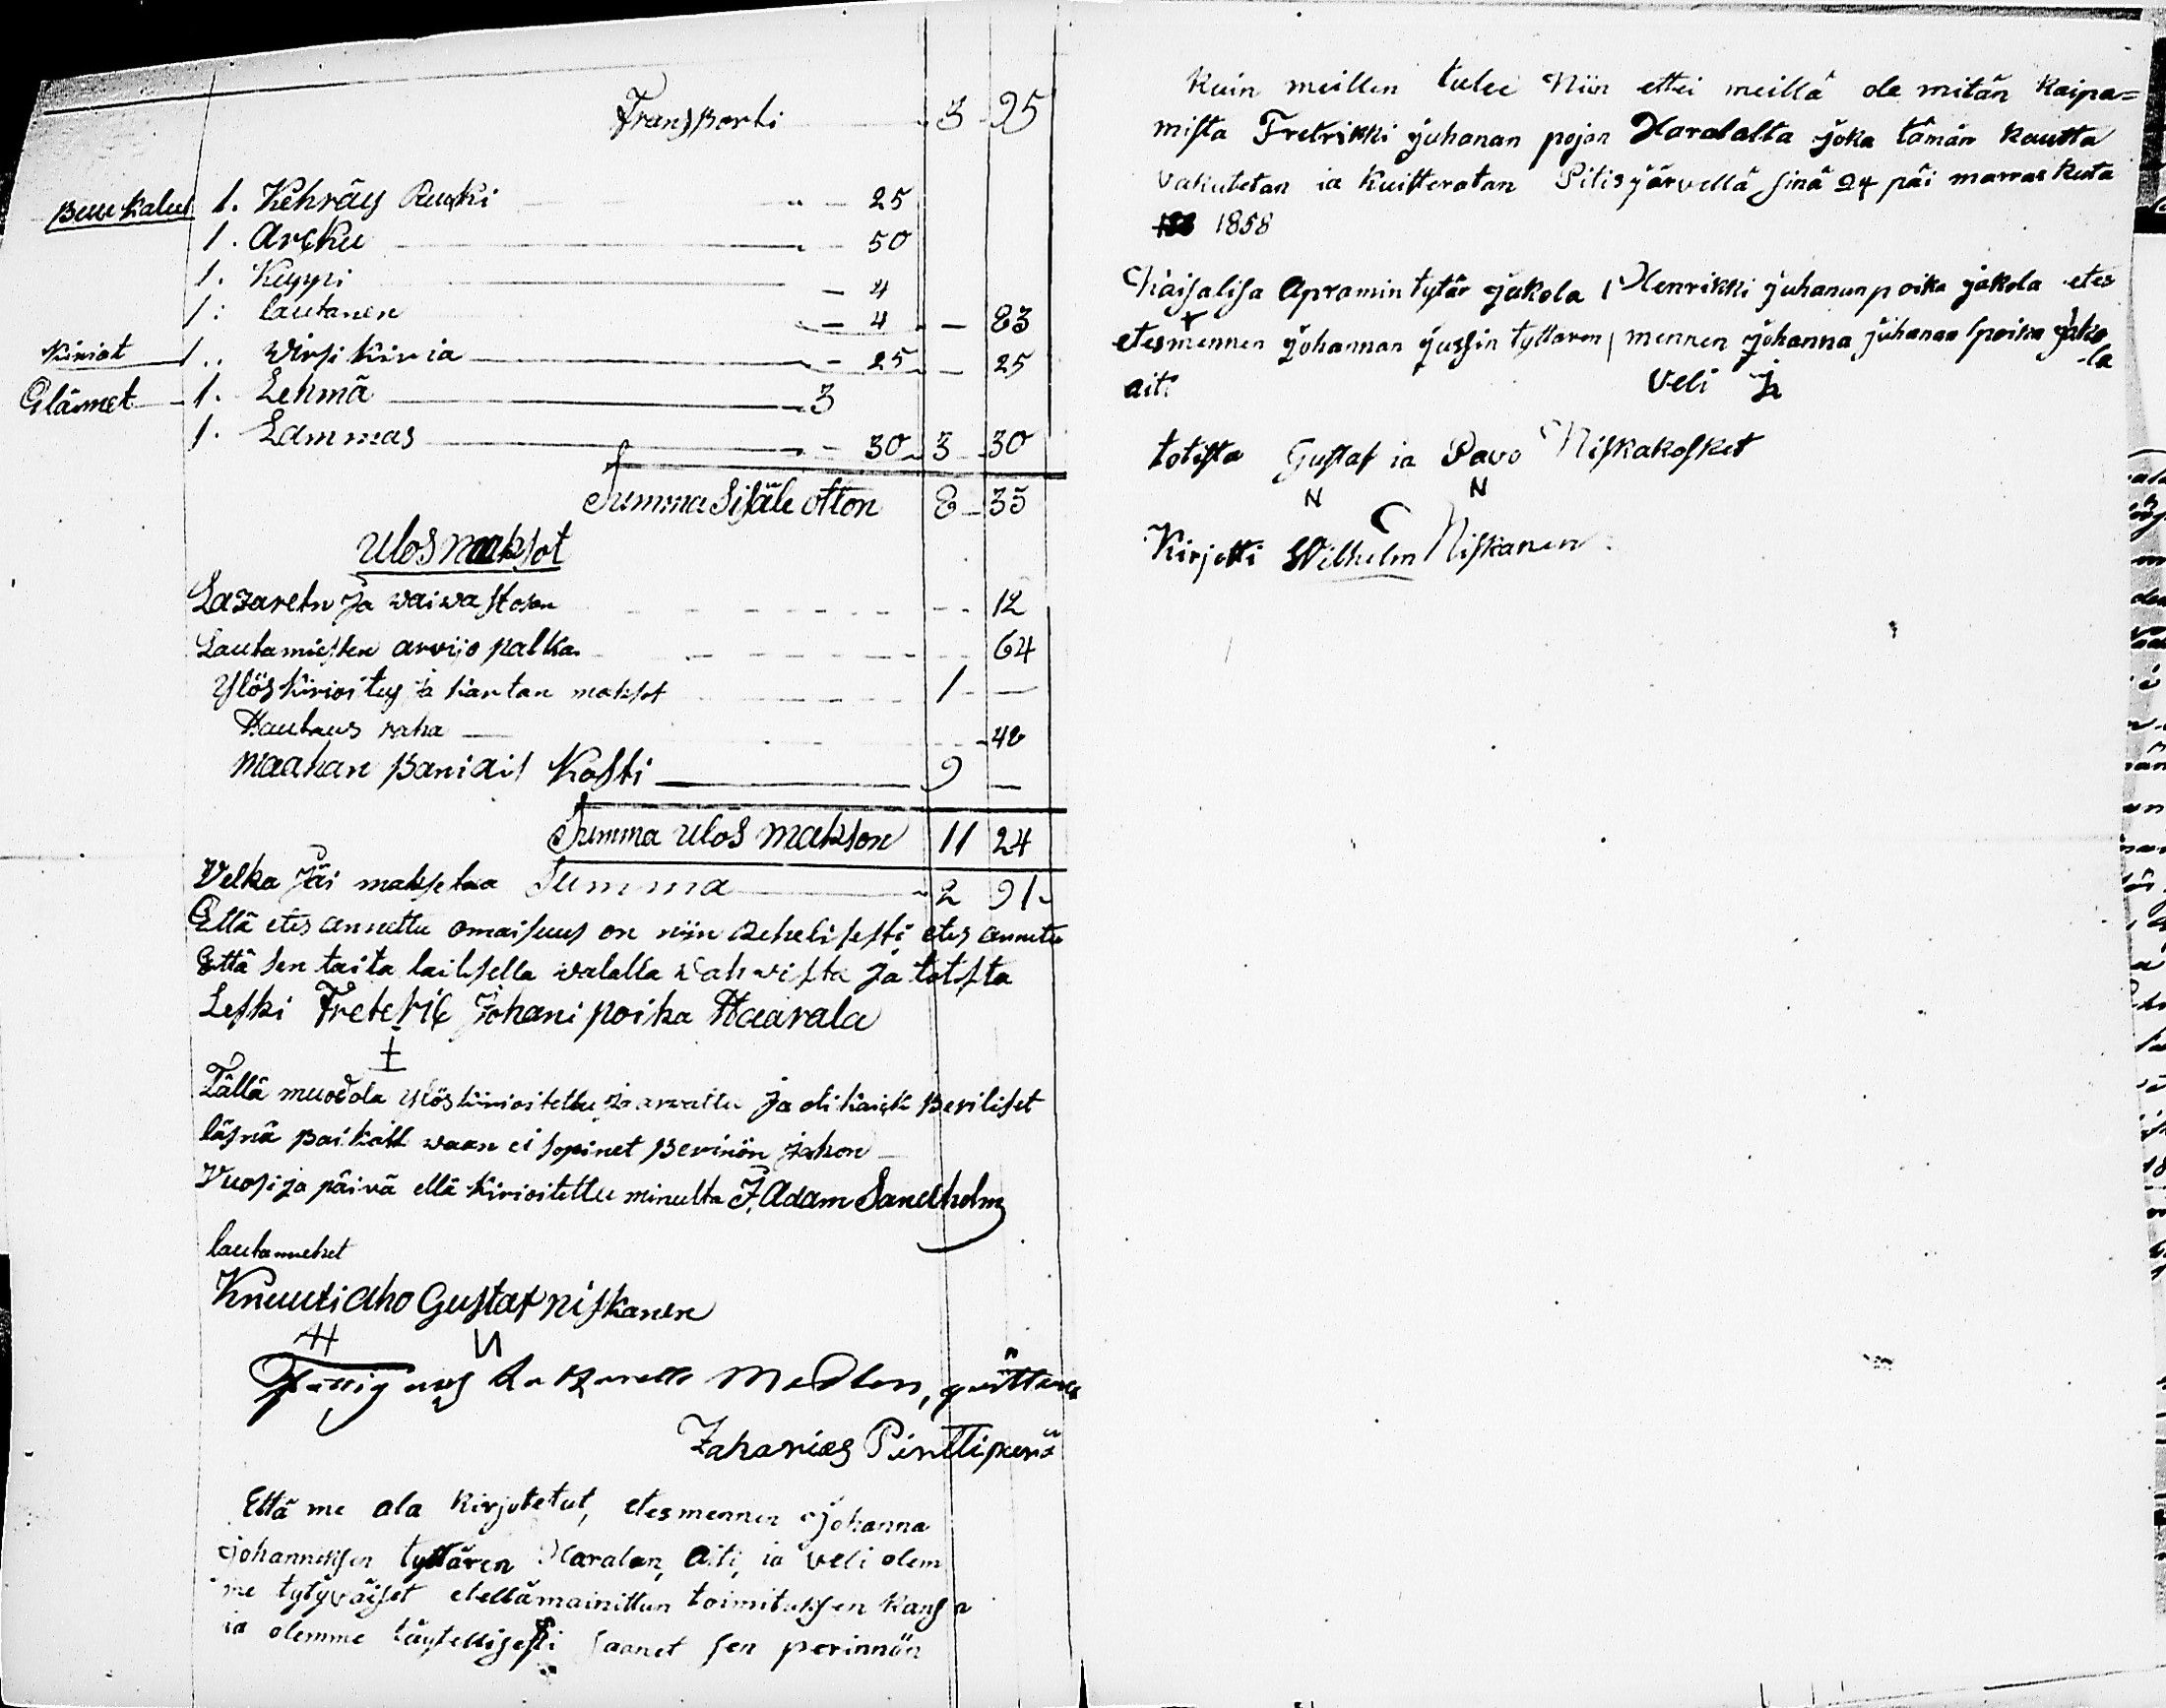 Transporti 3 95
Puu kalut 1. Kehräys Rucki 25
1. Arcku 50
1. Kuppi 4
1: lautanen 4 83
Kiriat 1. Wirsi Kiria 25 25
Eläimet 1. Lehmä 3
1. Lammas 30 3 30
Summa Sisäle otton 8 33
Ulos maksot
Lazaretin Ja waiwastosen 12
Lautamiesten arvijo palka 64
Ylöskirioitus ja kartan maksot 1 —
Hautaus raha 48
Maahan Paniais Kosti 9 —
Summa Ulos Makson 11 24
Velka Jäi maksetaa Summa 2 91
Että etes annettu omaisuus on niin Rehelisesti etes annetu
Että sen taita lailisella walalla wahwista ja totista
Leski Freteric Johani poika Haarala
Tällä muodola ylöskirioitettu ja arvattu ja oli kaick Periliset
läsnä Paikall waan ei sopinet Perinön jakon
Vuosi ja päivä ellä kirioitettu minulta J. Adam Sandholm
lautamiehet
Knuuti aho Gustaf Niskanen
H N
Fattig och Latzaretts Medlen, quitteras
Zaharias Pirttiperä
Että me ala Kirjotetut, etesmennen Johanna
Johanneksen tyttären Haralan, Äiti, ia Veli olem
me tytyväiset etellämainittun toimituksen Kansa
ia olemme täytellisesti saanet sen perinnön
Kuin meillen tulee Niin ettei meillä ole mitän Kaipa=
mista Fretrikki Juhanan pojan Haralalta joka tämän Kautta
vakutetan ia Kuitteratan Pitisjärvellä sinä 24 päi marras kuta
1858
Kaisalisa Apramin tytär Jakola Henrikki Juhanunpoika jakola etes
etesmennen Johannan Jussin tyttaren mennen Johanna Juhanan poika Jako
la
aiti Veli
totista Gustaf ia Pavo Niskakosket
N N
Kirjotti Wilhelm Niskanen